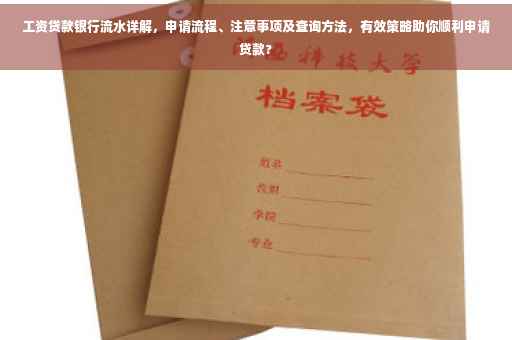 工资贷款银行流水详解，申请流程、注意事项及查询方法，有效策略助你顺利申请
贷款？
科技大学
档案袋
姓名
学院
专业